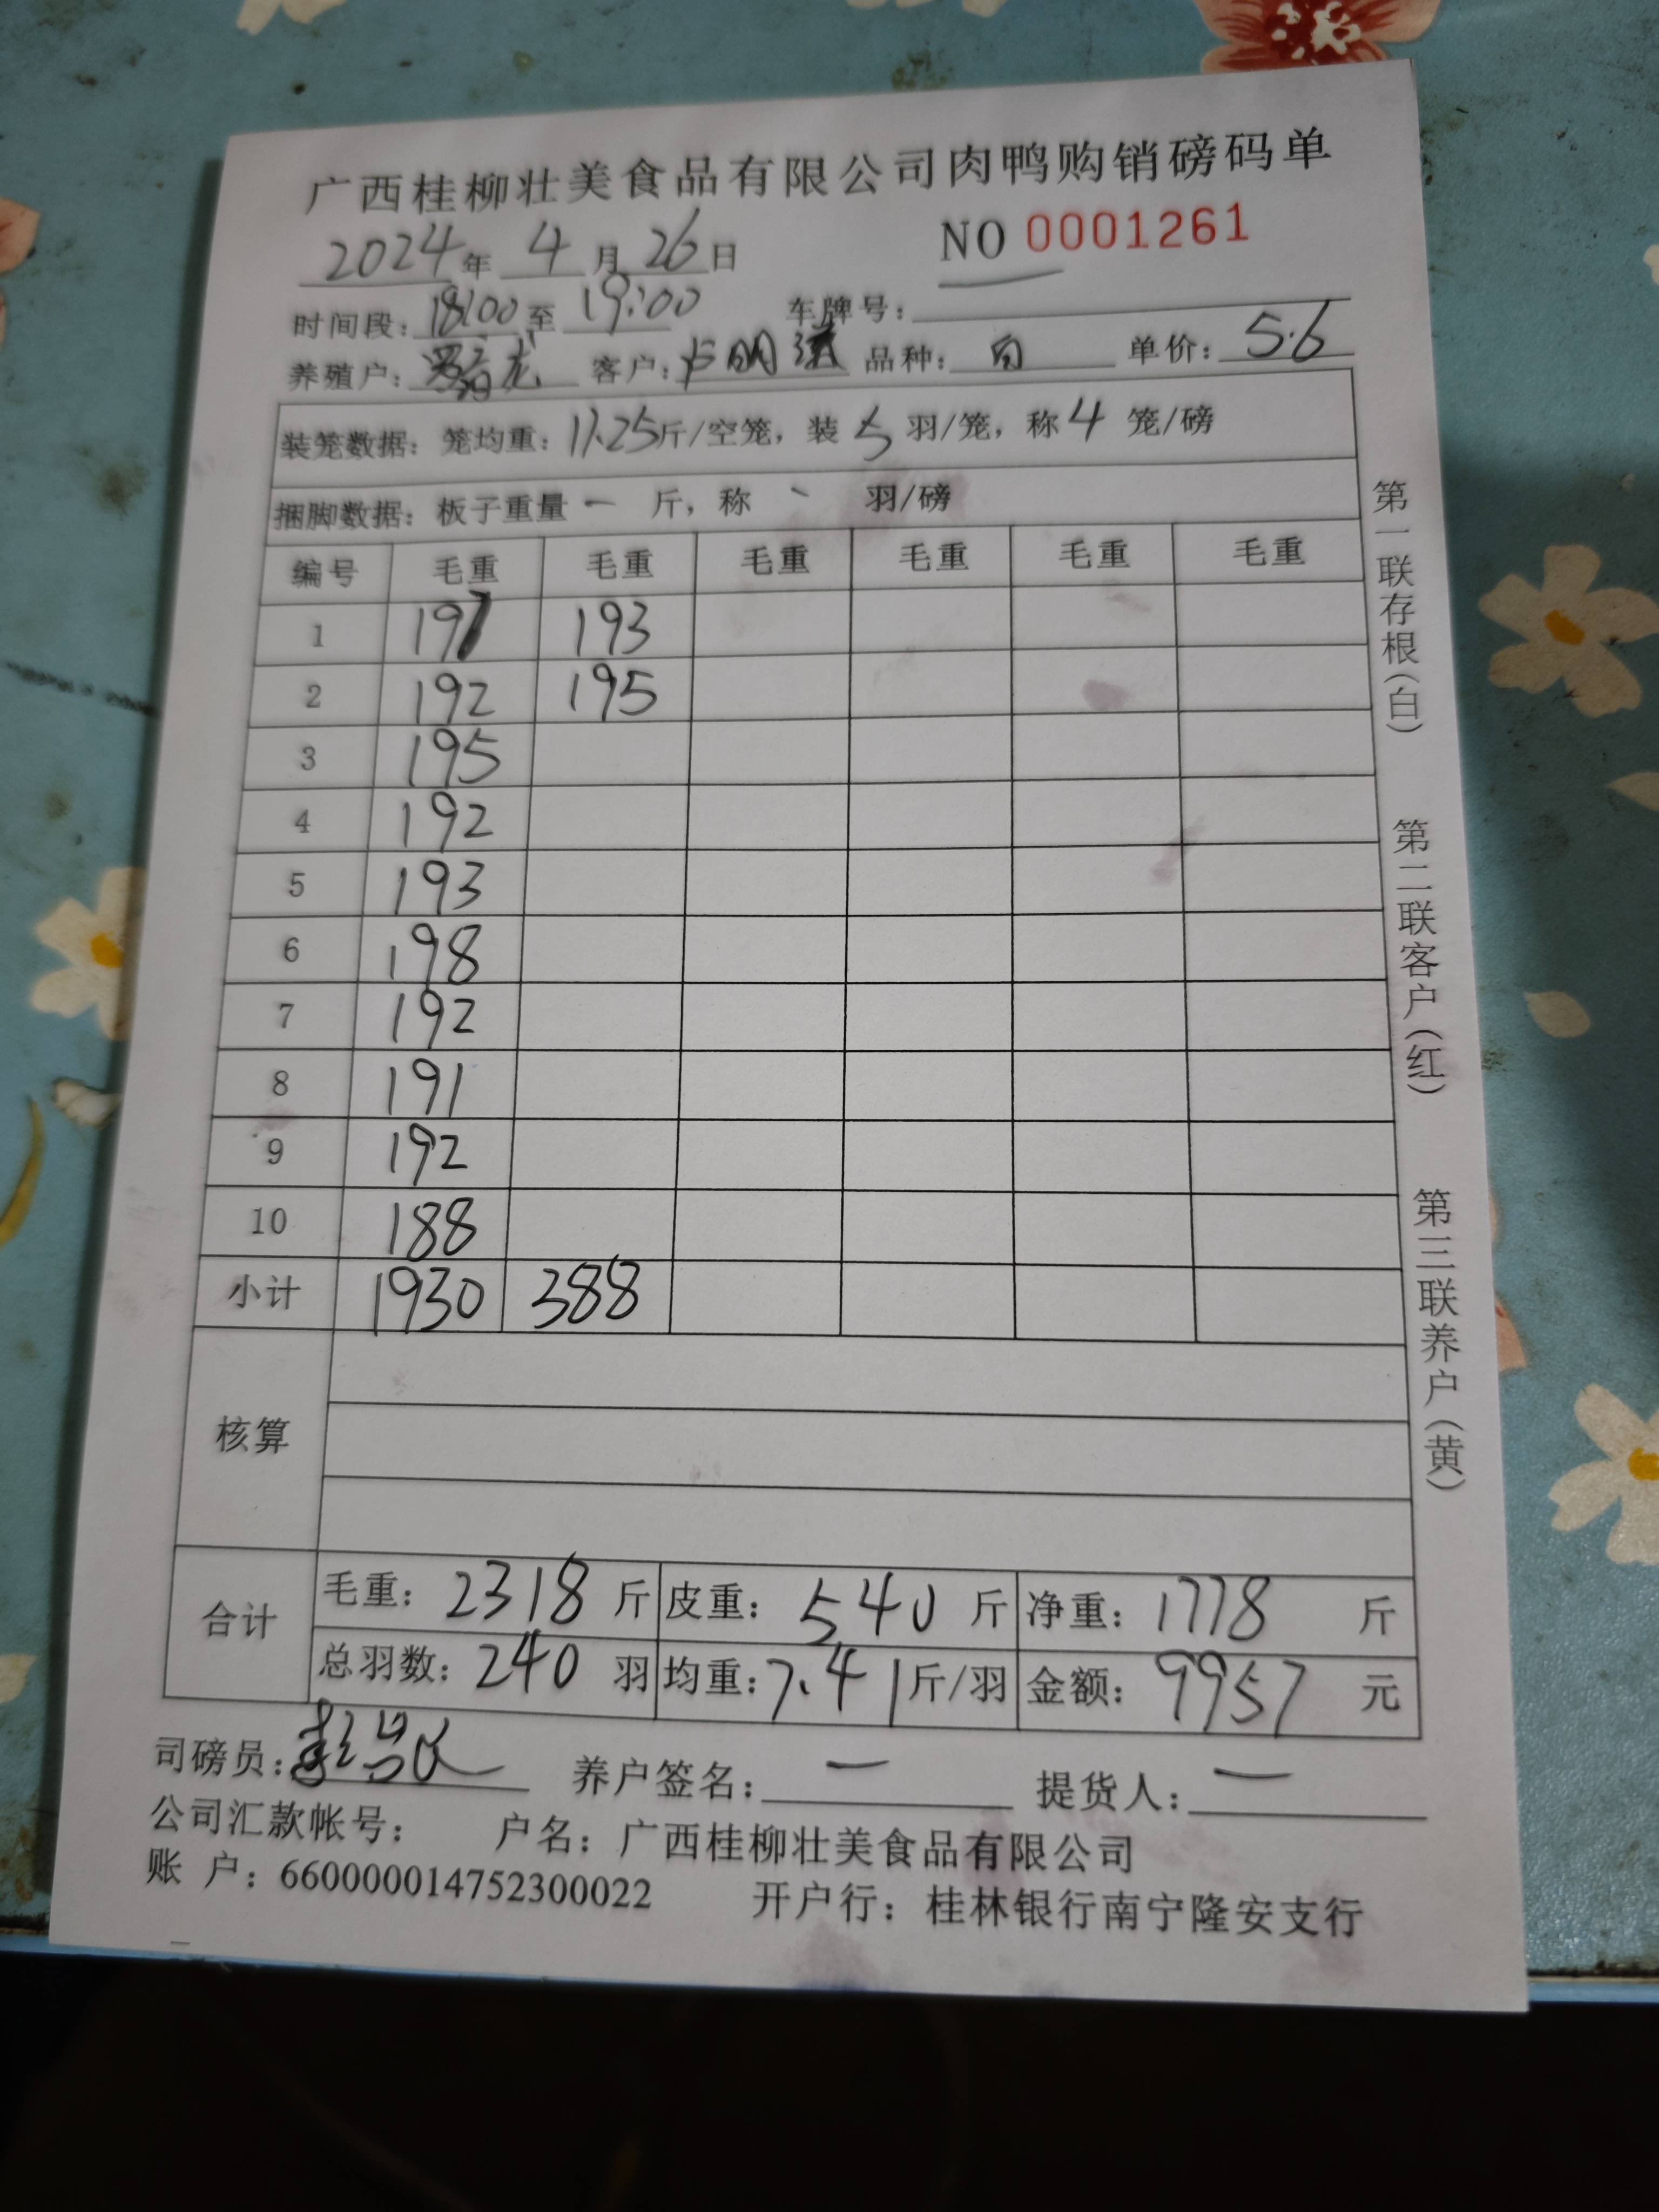 广西桂柳壮美食品有限公司肉鸭购销磅码单
2024年 4月26日 NO 0001261
时间段：18:00至19:00 车牌号：
养殖户： 客户：卢明 品种：白 单价：5.6
装笼数据：笼均重：11.25斤/空笼，装 5 羽/笼，称 4 笼/磅
捆脚数据：板子重量 一 斤，称 、 羽/磅
编号 毛重 毛重 毛重 毛重 毛重 毛重
1 197 193
2 192 195
3 195
4 192
5 193
6 198
7 192
8 191
9 192
10 188
小计 1930 388
核算
合计 毛重：2318斤 皮重：540斤 净重：1778 斤
总羽数：240 羽 均重：7.41斤/羽 金额：9957 元
司磅员： 养户签名：一 提货人：一
公司汇款帐号： 户名：广西桂柳壮美食品有限公司
账 户：660000014752300022 开户行：桂林银行南宁隆安支行
第一联存根（白）
第二联客户（红）
第三联养户（黄）